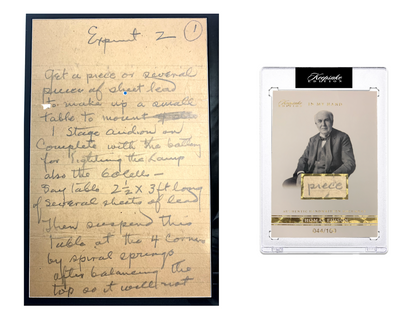 Expment 2 1
Get a piece or several
pieces of sheet lead
to make up a small
table to mount
1 Stage audion on
Complete with the battery
for lighting the Lamp
also the 60 cells -
Say table 2½ x 3 ft long
of several sheets of lead
Then suspend this
table at the 4 corners
by spiral springs
after balancing the
top so it will not
Keepsake
piece
044/161